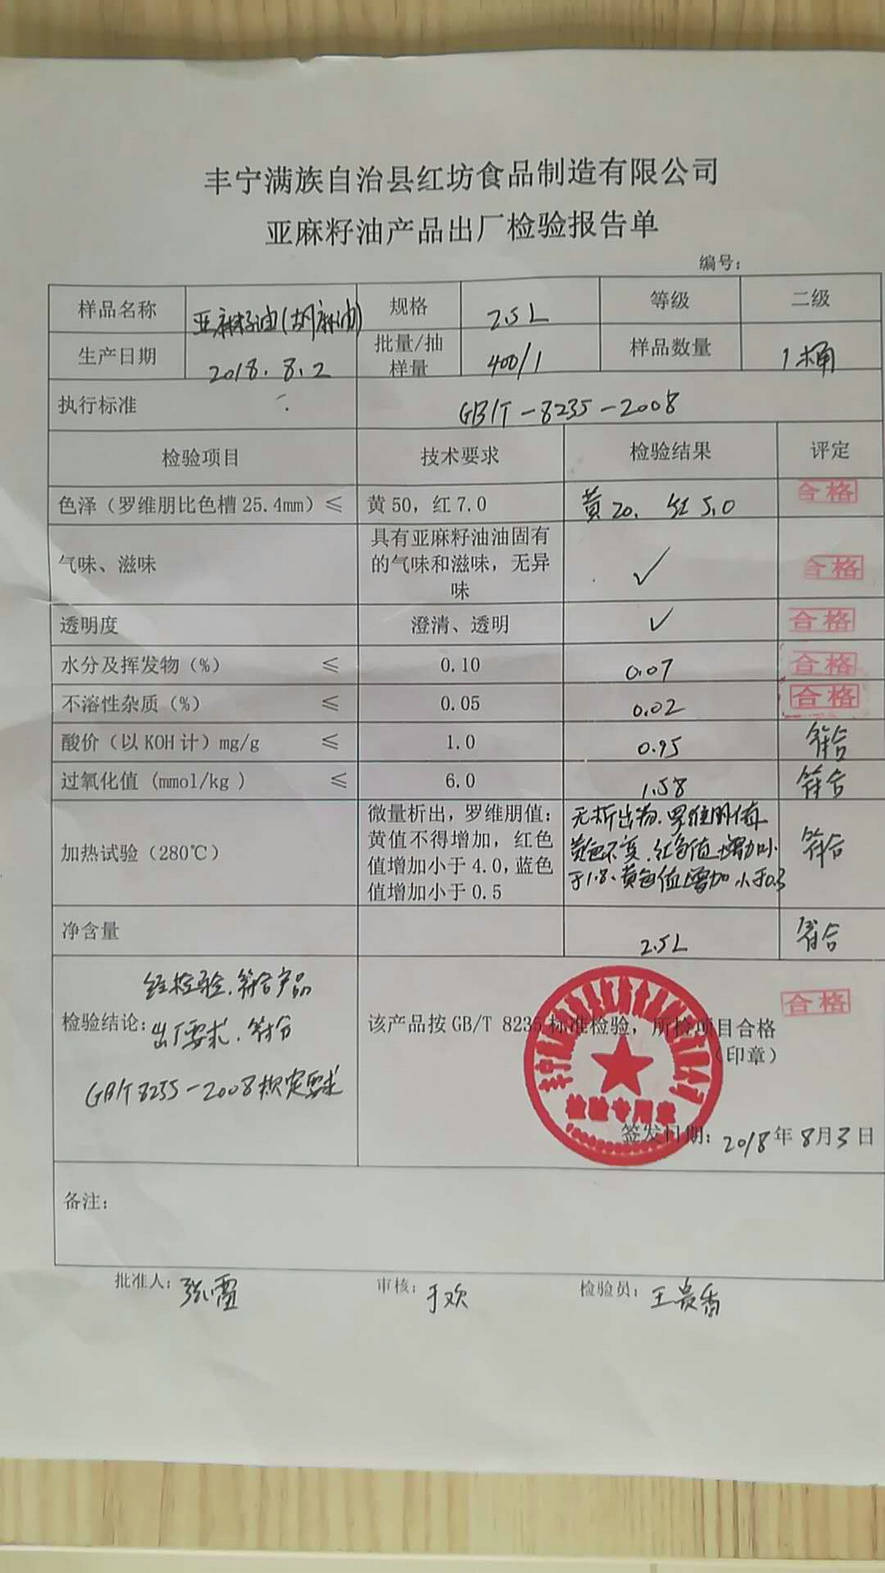 丰宁满族自治县红坊食品制造有限公司
亚麻籽油产品出厂检验报告单
编号：
样品名称 亚麻籽油(胡麻油) 规格 2.5L 等级 二级
生产日期 2018.8.2 批量/抽样量 400/1 样品数量 1桶
执行标准 GB/T-8235-2008
检验项目 技术要求 检验结果 评定
色泽（罗维朋比色槽25.4mm）≤ 黄50，红7.0 黄20. 红5.0 合格
气味、滋味 具有亚麻籽油油固有的气味和滋味，无异味 ✓ 合格
透明度 澄清、透明 ✓ 合格
水分及挥发物（%） ≤ 0.10 0.07 合格
不溶性杂质（%） ≤ 0.05 0.02 合格
酸价（以KOH计）mg/g ≤ 1.0 0.95 符合
过氧化值（mmol/kg） ≤ 6.0 1.58 符合
加热试验（280℃） 微量析出，罗维朋值：黄值不得增加，红色值增加小于4.0，蓝色值增加小于0.5 无析出物.罗维朋值黄色不变.红色值增加小于1.8、黄色值增加小于0.3 符合
净含量 2.5L 符合
检验结论：经检验.符合产品
出厂要求.符合
GB/T 8235-2008规定要求
合格
该产品按GB/T 8235标准检验，所检项目合格
（印章）
检验专用章
签发日期：2018年8月3日
备注：
批准人：张雷 审核：于欢 检验员：王贵香